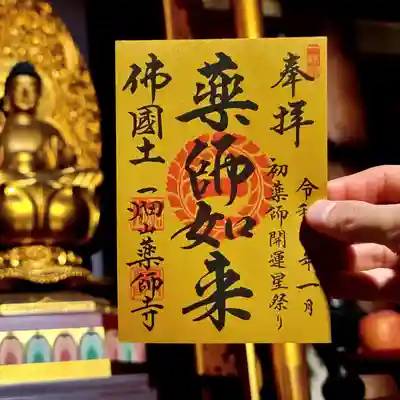 奉拝
令和
年一月
初薬師開運星祭り
薬師如来
佛國土
一畑山薬師寺